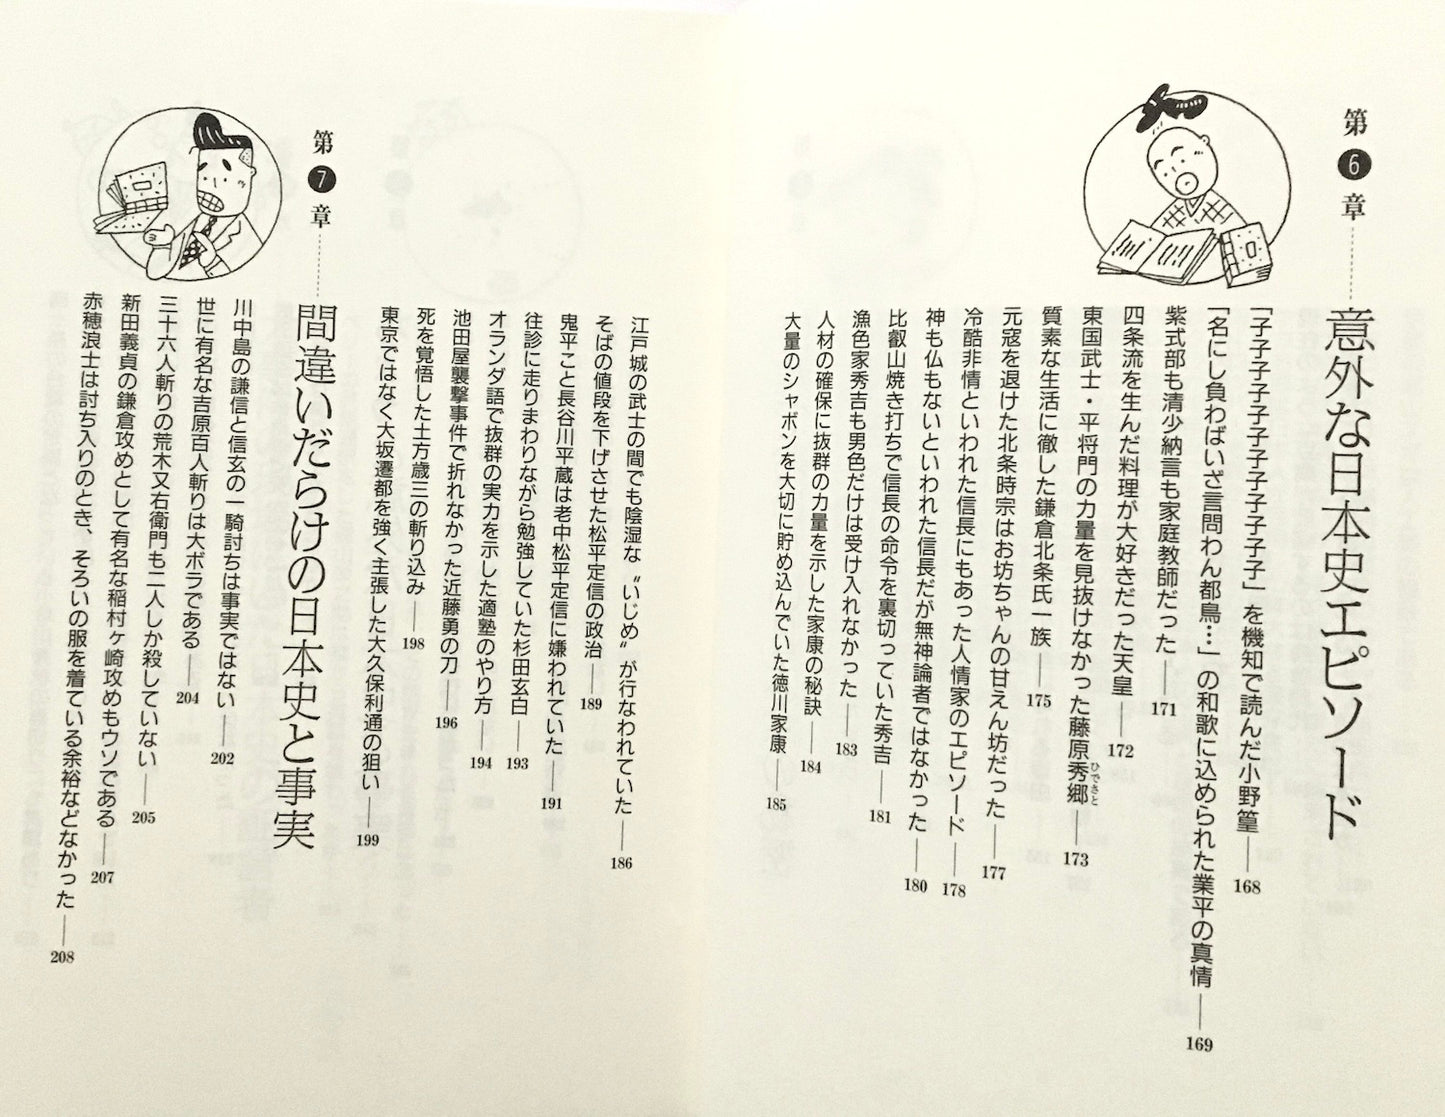 第6章
意外な日本史エピソード
「子子子子子子子子子子子子」を機知で読んだ小野篁──168
「名にし負わばいざ言問わん都鳥…」の和歌に込められた業平の真情──169
紫式部も清少納言も家庭教師だった──171
四条流を生んだ料理が大好きだった天皇──172
東国武士・平将門の力量を見抜けなかった藤原秀郷──173
ひでさと
質素な生活に徹した鎌倉北条氏一族──175
元寇を退けた北条時宗はお坊ちゃんの甘えん坊だった──177
冷酷非情といわれた信長にもあった人情家のエピソード──178
神も仏もないといわれた信長だが無神論者ではなかった──180
比叡山焼き打ちで信長の命令を裏切っていた秀吉──181
漁色家秀吉も男色だけは受け入れなかった──183
人材の確保に抜群の力量を示した家康の秘訣──184
大量のシャボンを大切に貯め込んでいた徳川家康──185
江戸城の武士の間でも陰湿な〝いじめ〟が行なわれていた──186
そばの値段を下げさせた松平定信の政治──189
鬼平こと長谷川平蔵は老中松平定信に嫌われていた──191
往診に走りまわりながら勉強していた杉田玄白──193
オランダ語で抜群の実力を示した適塾のやり方──194
池田屋襲撃事件で折れなかった近藤勇の刀──196
死を覚悟した土方歳三の斬り込み──198
東京ではなく大坂遷都を強く主張した大久保利通の狙い──199
第7章
間違いだらけの日本史と事実
川中島の謙信と信玄の一騎討ちは事実ではない──202
世に有名な吉原百人斬りは大ボラである──204
三十六人斬りの荒木又右衛門も二人しか殺していない──205
新田義貞の鎌倉攻めとして有名な稲村ヶ崎攻めもウソである──207
赤穂浪士は討ち入りのとき、そろいの服を着ている余裕などなかった──208